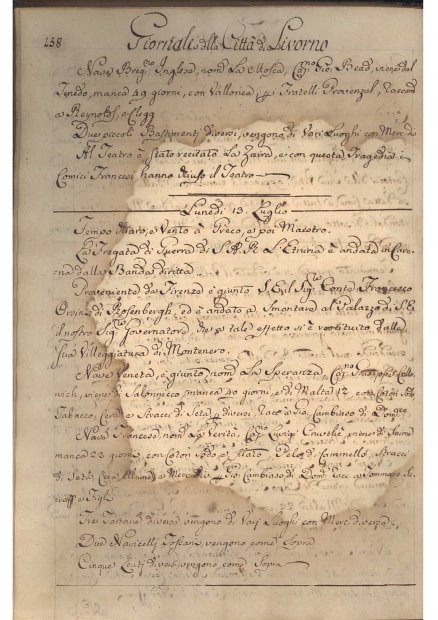 158 Giornale della Città di Livorno
Nave Inglese, nom.ª La Mosca, Cap.no Gio: Bead, viene dal
Tenedo, manca 49 giorni, con Vallonea p Fratelli Provenzal, Jaccond
a Reynolds, e Clegg
Due piccoli Bastimenti diversi, vengono di Varj Luoghi con Merc. div.
Al Teatro è Stato recitato La Zaira, e con questa Tragedia i
Comici Francesi hanno chiuso il Teatro
Lunedì 13 Luglio
Tempo Vento à Greco, e poi Maestro.
La Fregata di Guerra di S. A. R. L'Etruria è andata in
dalla Banda diritta
Proveniente da Firenze è giunto S. E. il Sig.re Conte Francesco
Orsini di Rosenbergh, ed è andato a Smontare al Palazzo di S. E.
il nostro Sig.re Governatore, che p tale effetto si è restituito dalla
Sua Villeggiatura di Montenero.
Nave Veneta, è giunto, nom.ª La Speranza Cap.no
vich, viene di Salonnicco, manca 40 giorni, e di Malta 12, con Cotoni
Tabacco, Cera e Stracci di Seta p diversi, Racc. a Gio. Cambiaso di Dom.co
Nave Francese nom.ª La Verità, Cap.no Luigi viene di Smirne
manca 23 giorni, con Coton Sodo, e filato, Pelo di Cammello, Stracci
di Seta, Cera, Allume, e Mercanzie p Gio Cambiaso di Dom. Racc. a Tommaso
e Figli
Tre Tartane diverse vengono di Varj Luoghi con Merc. diverse;
Due Navicelli Toscani vengono come Sopra
Cinque Leuti diversi vengono come Sopra